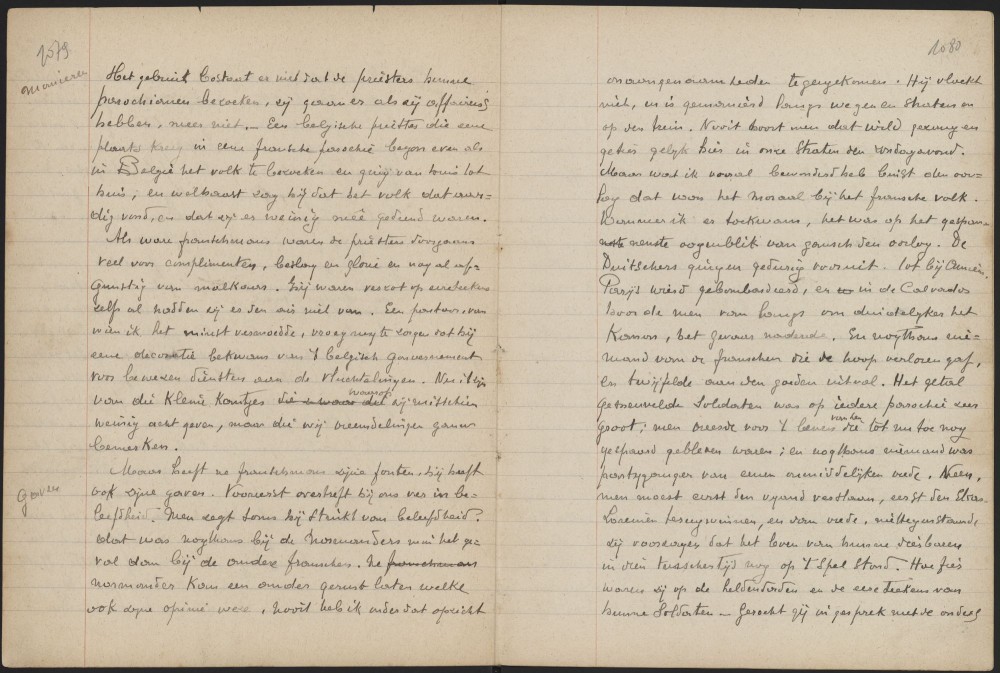 1079
manieren
Het gebruik bestaat er niet dat de priesters hunne
parochianen bezoeken, zij gaan er als zij affairens
hebben, meer niet. — Een belgische priester die eene
plaats kreeg in eene fransche parochie begon even als
in België het volk te bezoeken en ging van huis tot
huis; en welhaast zag hij dat het volk dat aar=
dig vond, en dat zij er weinig meê gediend waren.
Als ware franschmans waren de priesters doorgaans
veel voor complimenten, beslag en glorie en nog al af=
gunstig van malkaars. Zij waren verzot op eereteekens
zelfs al hadden zij er den aais niet van. Een pastoor, van
wien ik het minst vermoedde, vroeg mij te zorgen dat hij
eene decoratie bekwam van 't belgisch gouvernement
voor bewezen diensten aan de vluchtelingen. Nu 't zijn
van die kleine kantjes waarop zij misschien
weinig acht geven, maar die wij vreemdelingen gauw
bemerken.
gaven
Maar heeft ne franschman zijne fouten, hij heeft
ook zijne gaven. Vooreerst overtreft hij ons ver in be=
leefdheid. Men zegt soms hij stinkt van beleefdheid.
dat was nogthans bij de Normanders min het ge=
val dan bij de andere franschen. Ne franschman
normander kon een ander gerust laten welke
ook zijne opinie were, nooit heb ik onder dat opzicht
1080
onaangenaamheden tegengekomen. Hij vloekt
niet, en is gemanierd langs wegen en straten en
op den trein. Nooit hoort men dat wild gezang en
geties gelijk hier in onze straten den zondagavond.
Maar wat ik vooral bewonderd heb tijdst den oor=
log dat was het moraal bij het fransche volk.
Wanneer ik er toekwam, het was op het gespan=
nenste oogenblik van gansch den oorlog. De
Duitschers gingen gedurig vooruit. Tot bij Amiens.
Parijs wierd gebombardeerd, en in de Calvados
hoorde men van langs om duidelijker het
Kanon, het gevaar naderde. En nogthans nie=
mand van de franschen die de hoop verloren gaf,
en twijfelde aan den goeden uitval. Het getal
gesneuvelde soldaten was op iedere parochie zeer
groot; men vreesde voor 't leven van hen die tot nu toe nog
gespaard gebleven waren; en nogthans niemand was
partijganger van eenen onmiddelijken vrede. Neen,
men moest eerst den vijand verslaan, eerst den Elzas-
Loreinen terugwinnen, en dan vrede, niettegenstaande
zij voorzagen dat het leven van hunne dierbaren
in dien tusschentijd nog op 't spel stond. Hoe fier
waren zij op de heldendaden en de eereteekens van
hunne soldaten — Geraakt gij in gesprek met de ouders